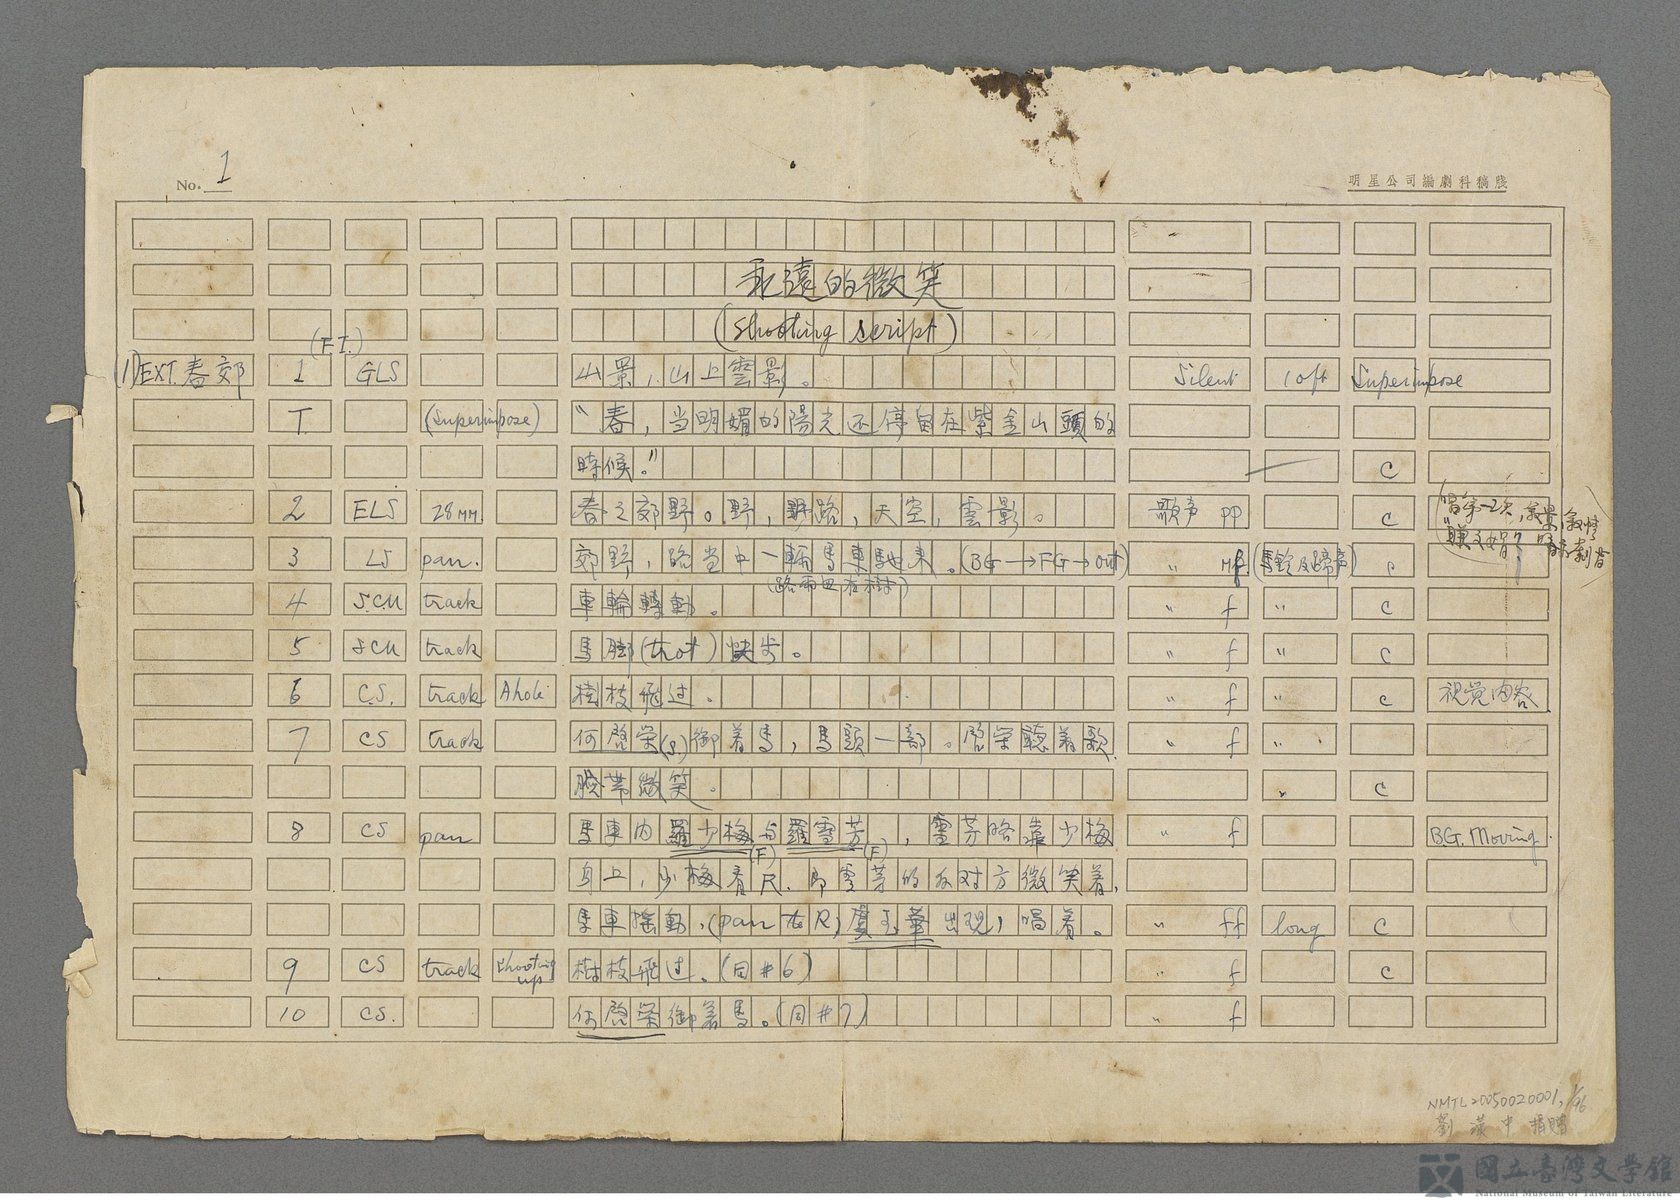 No. 1
明星公司編劇科稿牋
永遠的微笑
(Shooting script)
(F.I.)
(1) EXT. 春郊 1 GLS 山景,山上雲影。 Silent 10ft Superimpose
T. (Superimpose) "春,当明媚的陽光还停留在紫金山頭的
時候。" C
2 ELS 28MM. 春之郊野。野,野路,天空,雲影。 歌声 pp C
3 LS pan. 郊野,路当中一輛馬車馳来。(BG→FG→out) " mf (馬鈴及蹄声) c
(路両旦有樹)
4 SCU track 車輪轉動。 " f " C
5 SCU track 馬脚(trot)快步。 " f " C
6 C.S. track A hole 樹枝飛过。 " f " C 視覚内容
7 CS track 何啓栄(S)御着馬,馬頭一部。啓栄聽着歌
" f "
臉带微笑。 " C
8 CS pan 馬車内羅少梅与羅雪芳,雪芳略靠少梅 " f BG. Moving.
(F) (F)
身上,少梅看尺.即雪芳的反对方微笑着,
馬車摇動,(pan 右 R)虞玉華出現,唱着。 " ff long C
9 CS track shooting up 樹枝飛过。(同#6) " f C
10 CS. 何啓栄御着馬。(同#7) " f
NMTL20050020001, 1/96
劉漢中捐贈
國立臺灣文學館
National Museum of Taiwan Literature